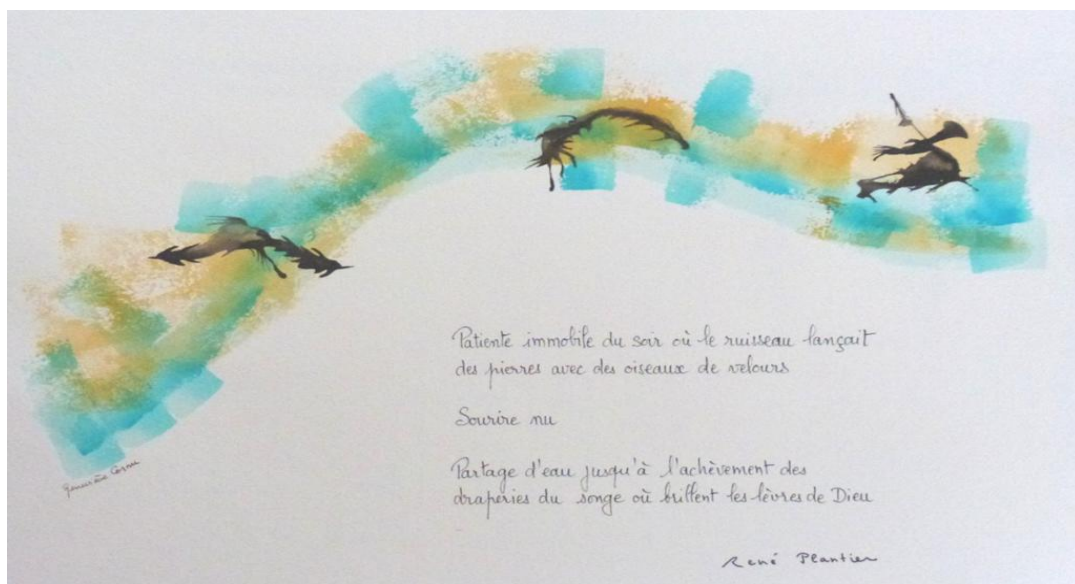 Patiente immobile du soir où le ruisseau lançait
des pierres avec des oiseaux de velours
Sourire nu
Partage d'eau jusqu'à l'achèvement des
draperies du songe où brillent les lèvres de Dieu
René Plantier
Geneviève Cornu